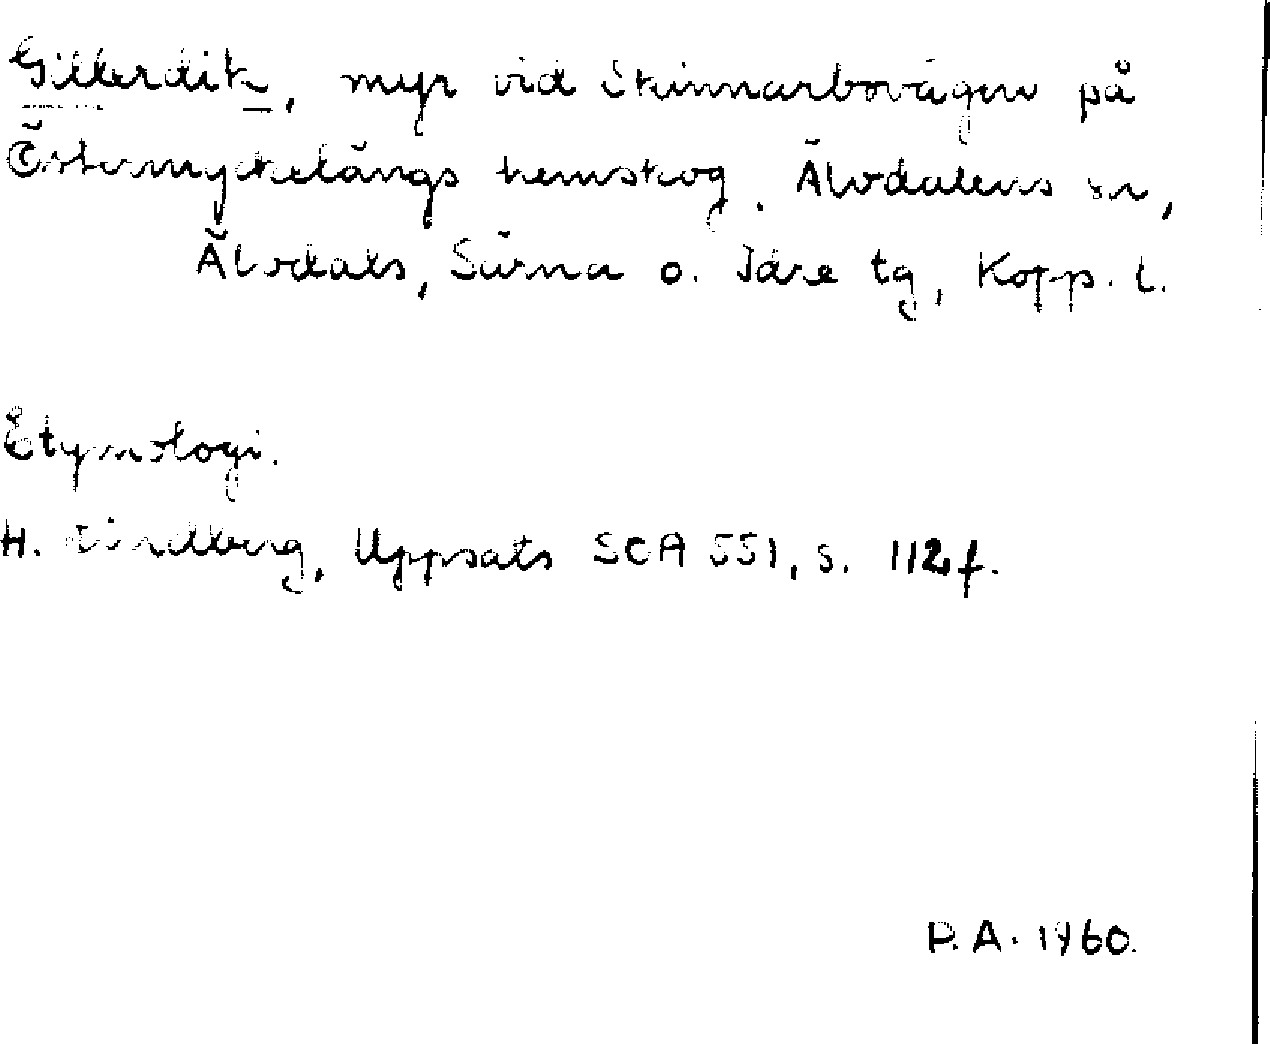 Gillerdik, myr vid Skinnarbovägen på
Östermyckelängs hemskog, Älvdalens sn,
Älvdals, Särna o. Idre tg, Kopp. l.
Etymologi.
H. Lindberg, Uppsats SOA 551, s. 112 f.
P. A. 1960.